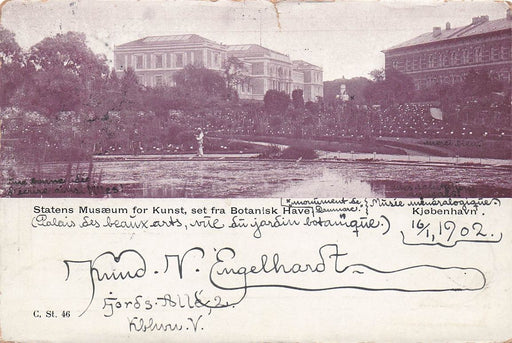 Statens Musæum for Kunst, set fra Botanisk Have,
*monument de Danmarc.
(Musée minéralogique.)
Kjøbenhavn.
(Palais des beaux arts, vue du jardin botanique.)
16/1, 1902.
Knud V. Engelhardt
Fjords Allé 2
Kbhvn. V.
C. St. 46